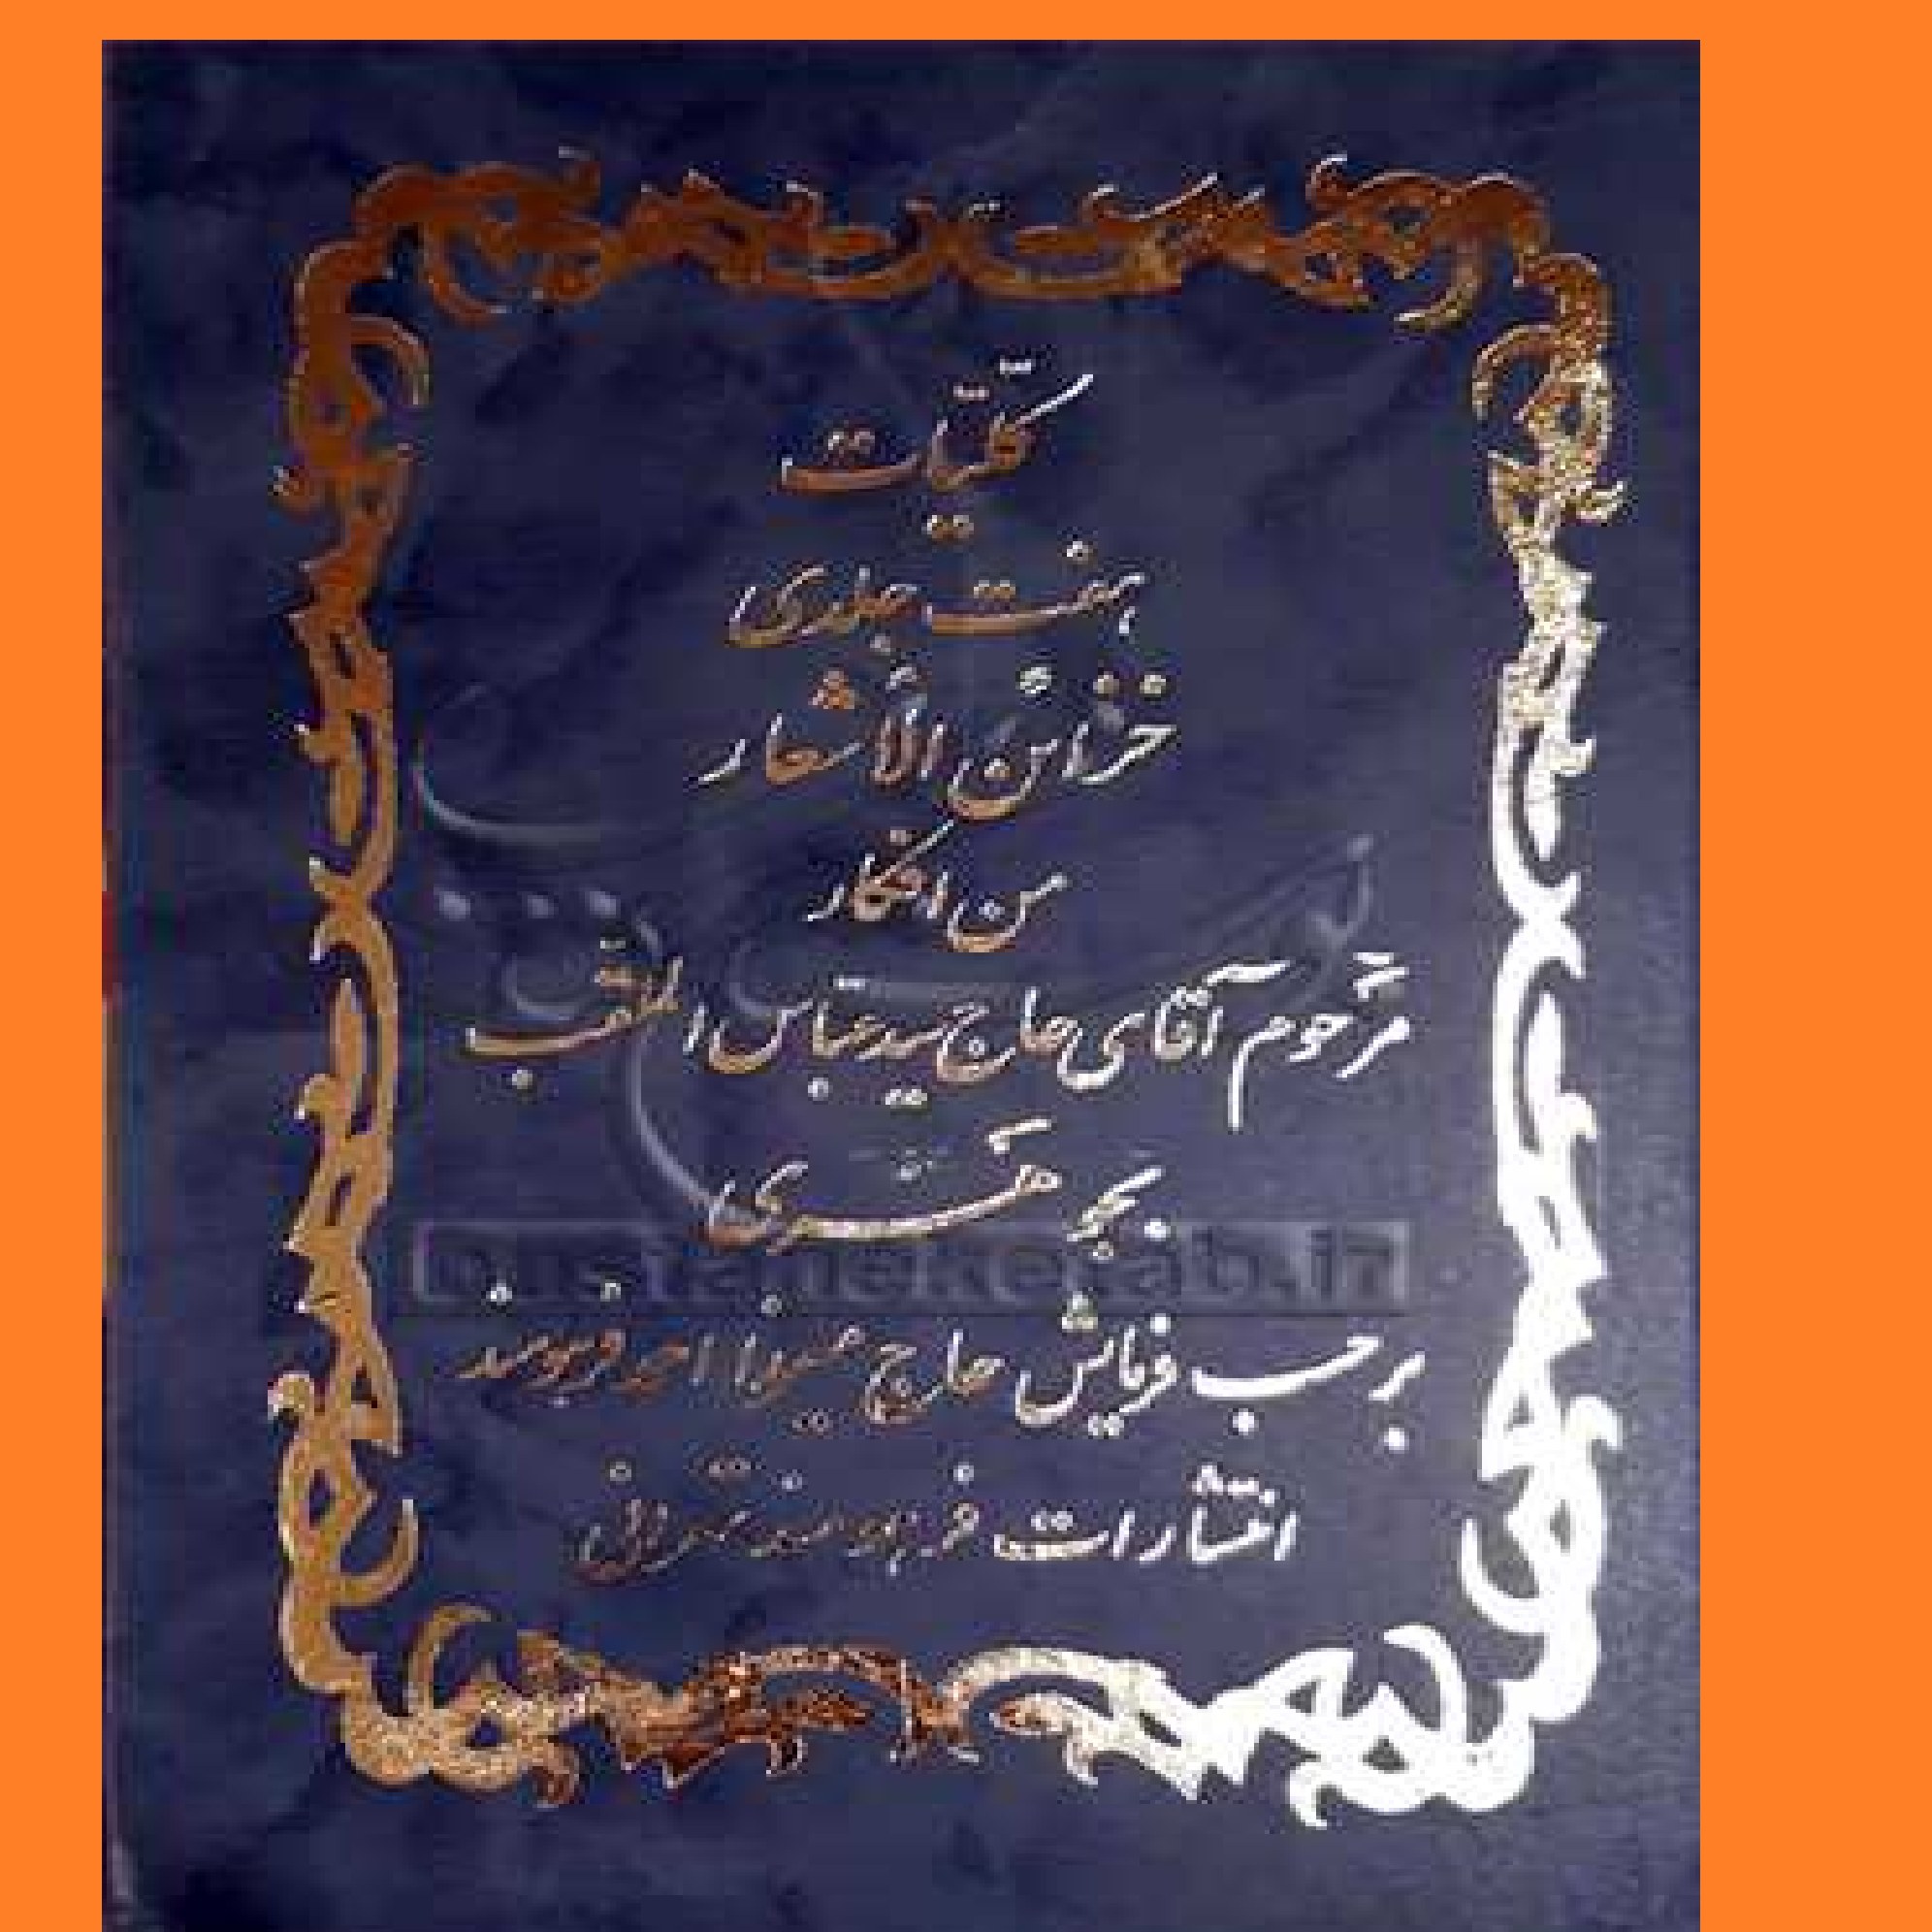 کلّیّات
هفت جلدی
خزائن الأشعار
من افکار
مرحوم آقای حاج سید عبّاس الملقّب
بجوهری
برحسب فرمایش حاج میرزا احمد
انتشارات تهرانی
bustaneketab.ir